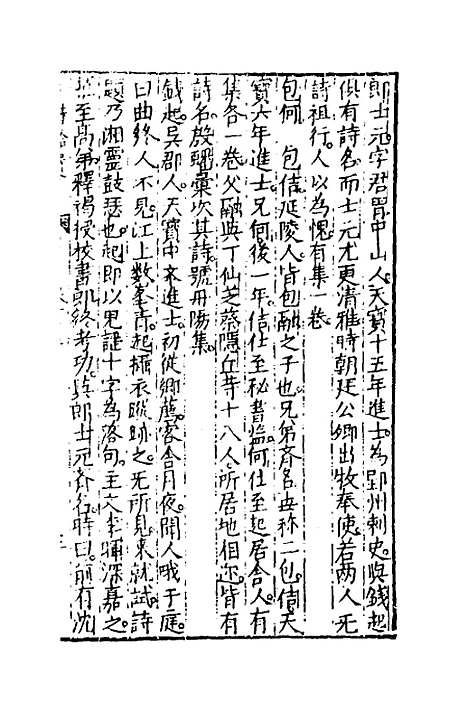 郎士元字君胄中山人天寶十五年進士為郢州刺史與錢起
俱有詩名而士元尤更清雅時朝廷公卿出牧奉使若两人无
詩祖行人以為愧有集一卷
包何　包佶延陵人皆包融之子也兄弟齊名世称二包佶天
寶六年進士兄何後一年佶仕至秘書監何仕至起居舎人有
集各一卷父融與丁仙芝蔡隱丘等十八人所居地相迩皆有
詩名殷璠彙次其詩號丹陽集
錢起吳郡人天寶中末進士初從鄉薦客舎月夜聞人哦于庭
曰曲終人不見江上数峯青起攝衣蹤跡之无所見来就試詩
題乃湘靈鼓瑟也起即以鬼謎十字為落句主文李暐深嘉之
至高第釋褐授校書郎終考功與郎士元齊名時曰前有沈